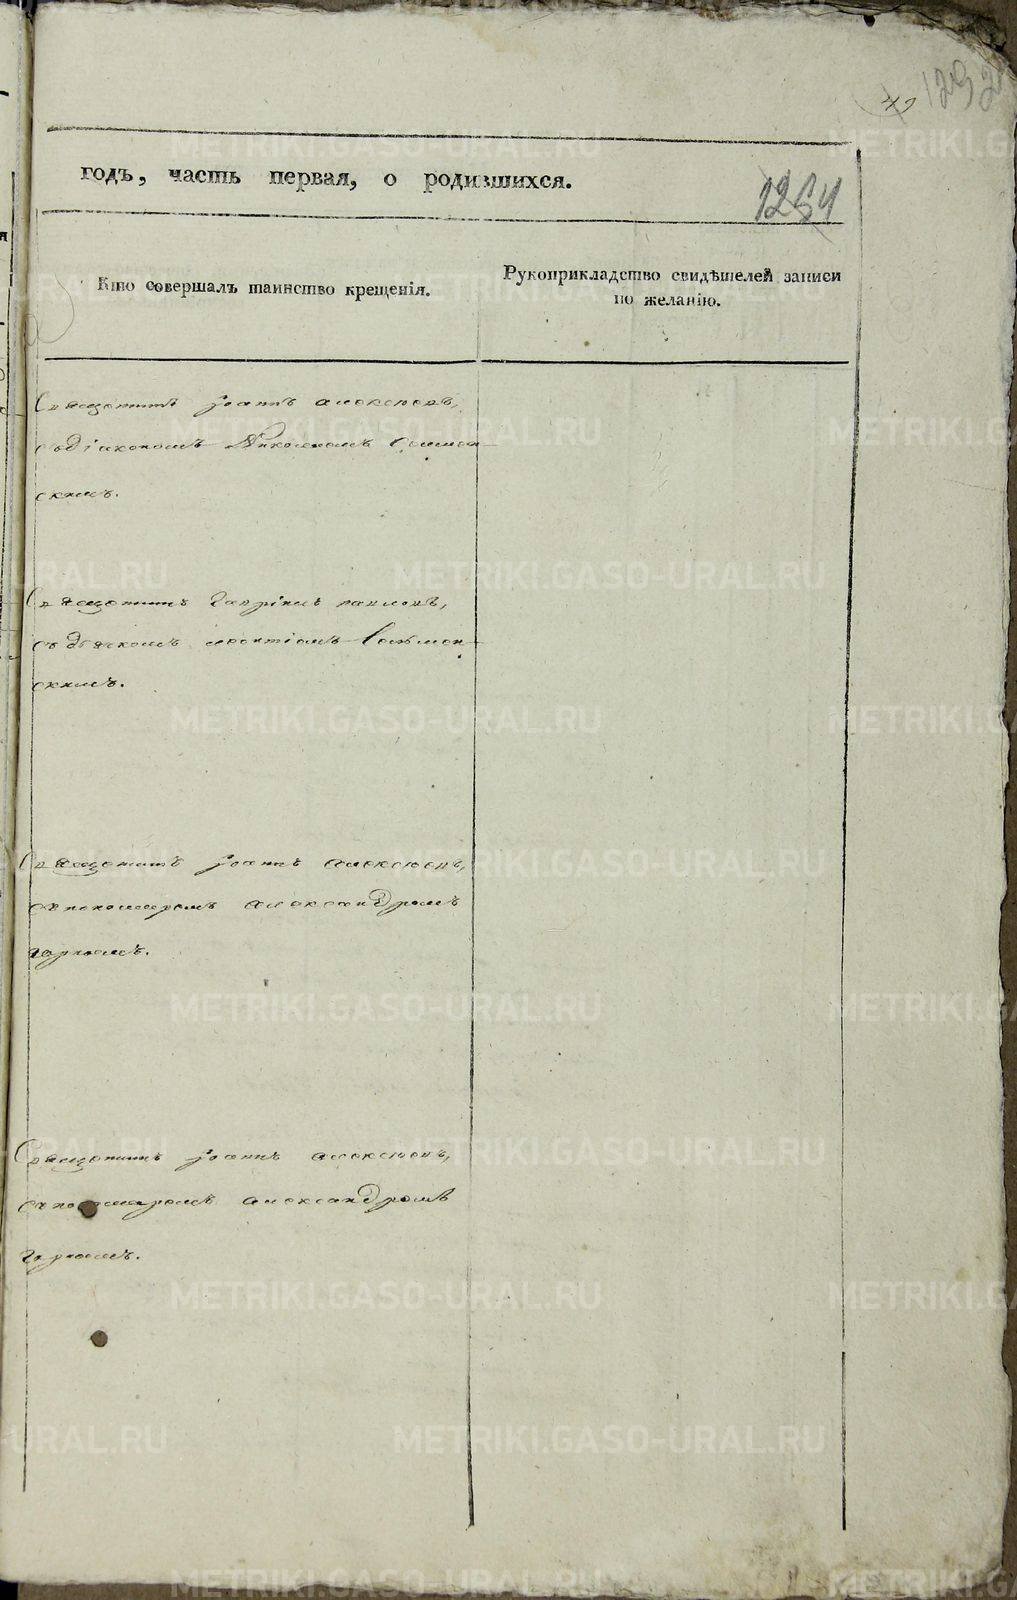 годъ, часть первая, о родившихся.
1264
Кто совершалъ таинство крещенія.
Рукоприкладство свидѣтелей записи
по желанію.
Священникъ Іоаннъ Алексѣевъ,
съ діакономъ Николаемъ
скимъ.
Священникъ Гавріилъ Павловъ,
съ дьячкомъ
скимъ.
Священникъ Іоаннъ Алексѣевъ,
съ пономаремъ Александромъ
Священникъ Іоаннъ Алексѣевъ,
съ пономаремъ Александромъ
METRIKI.GASO-URAL.RU